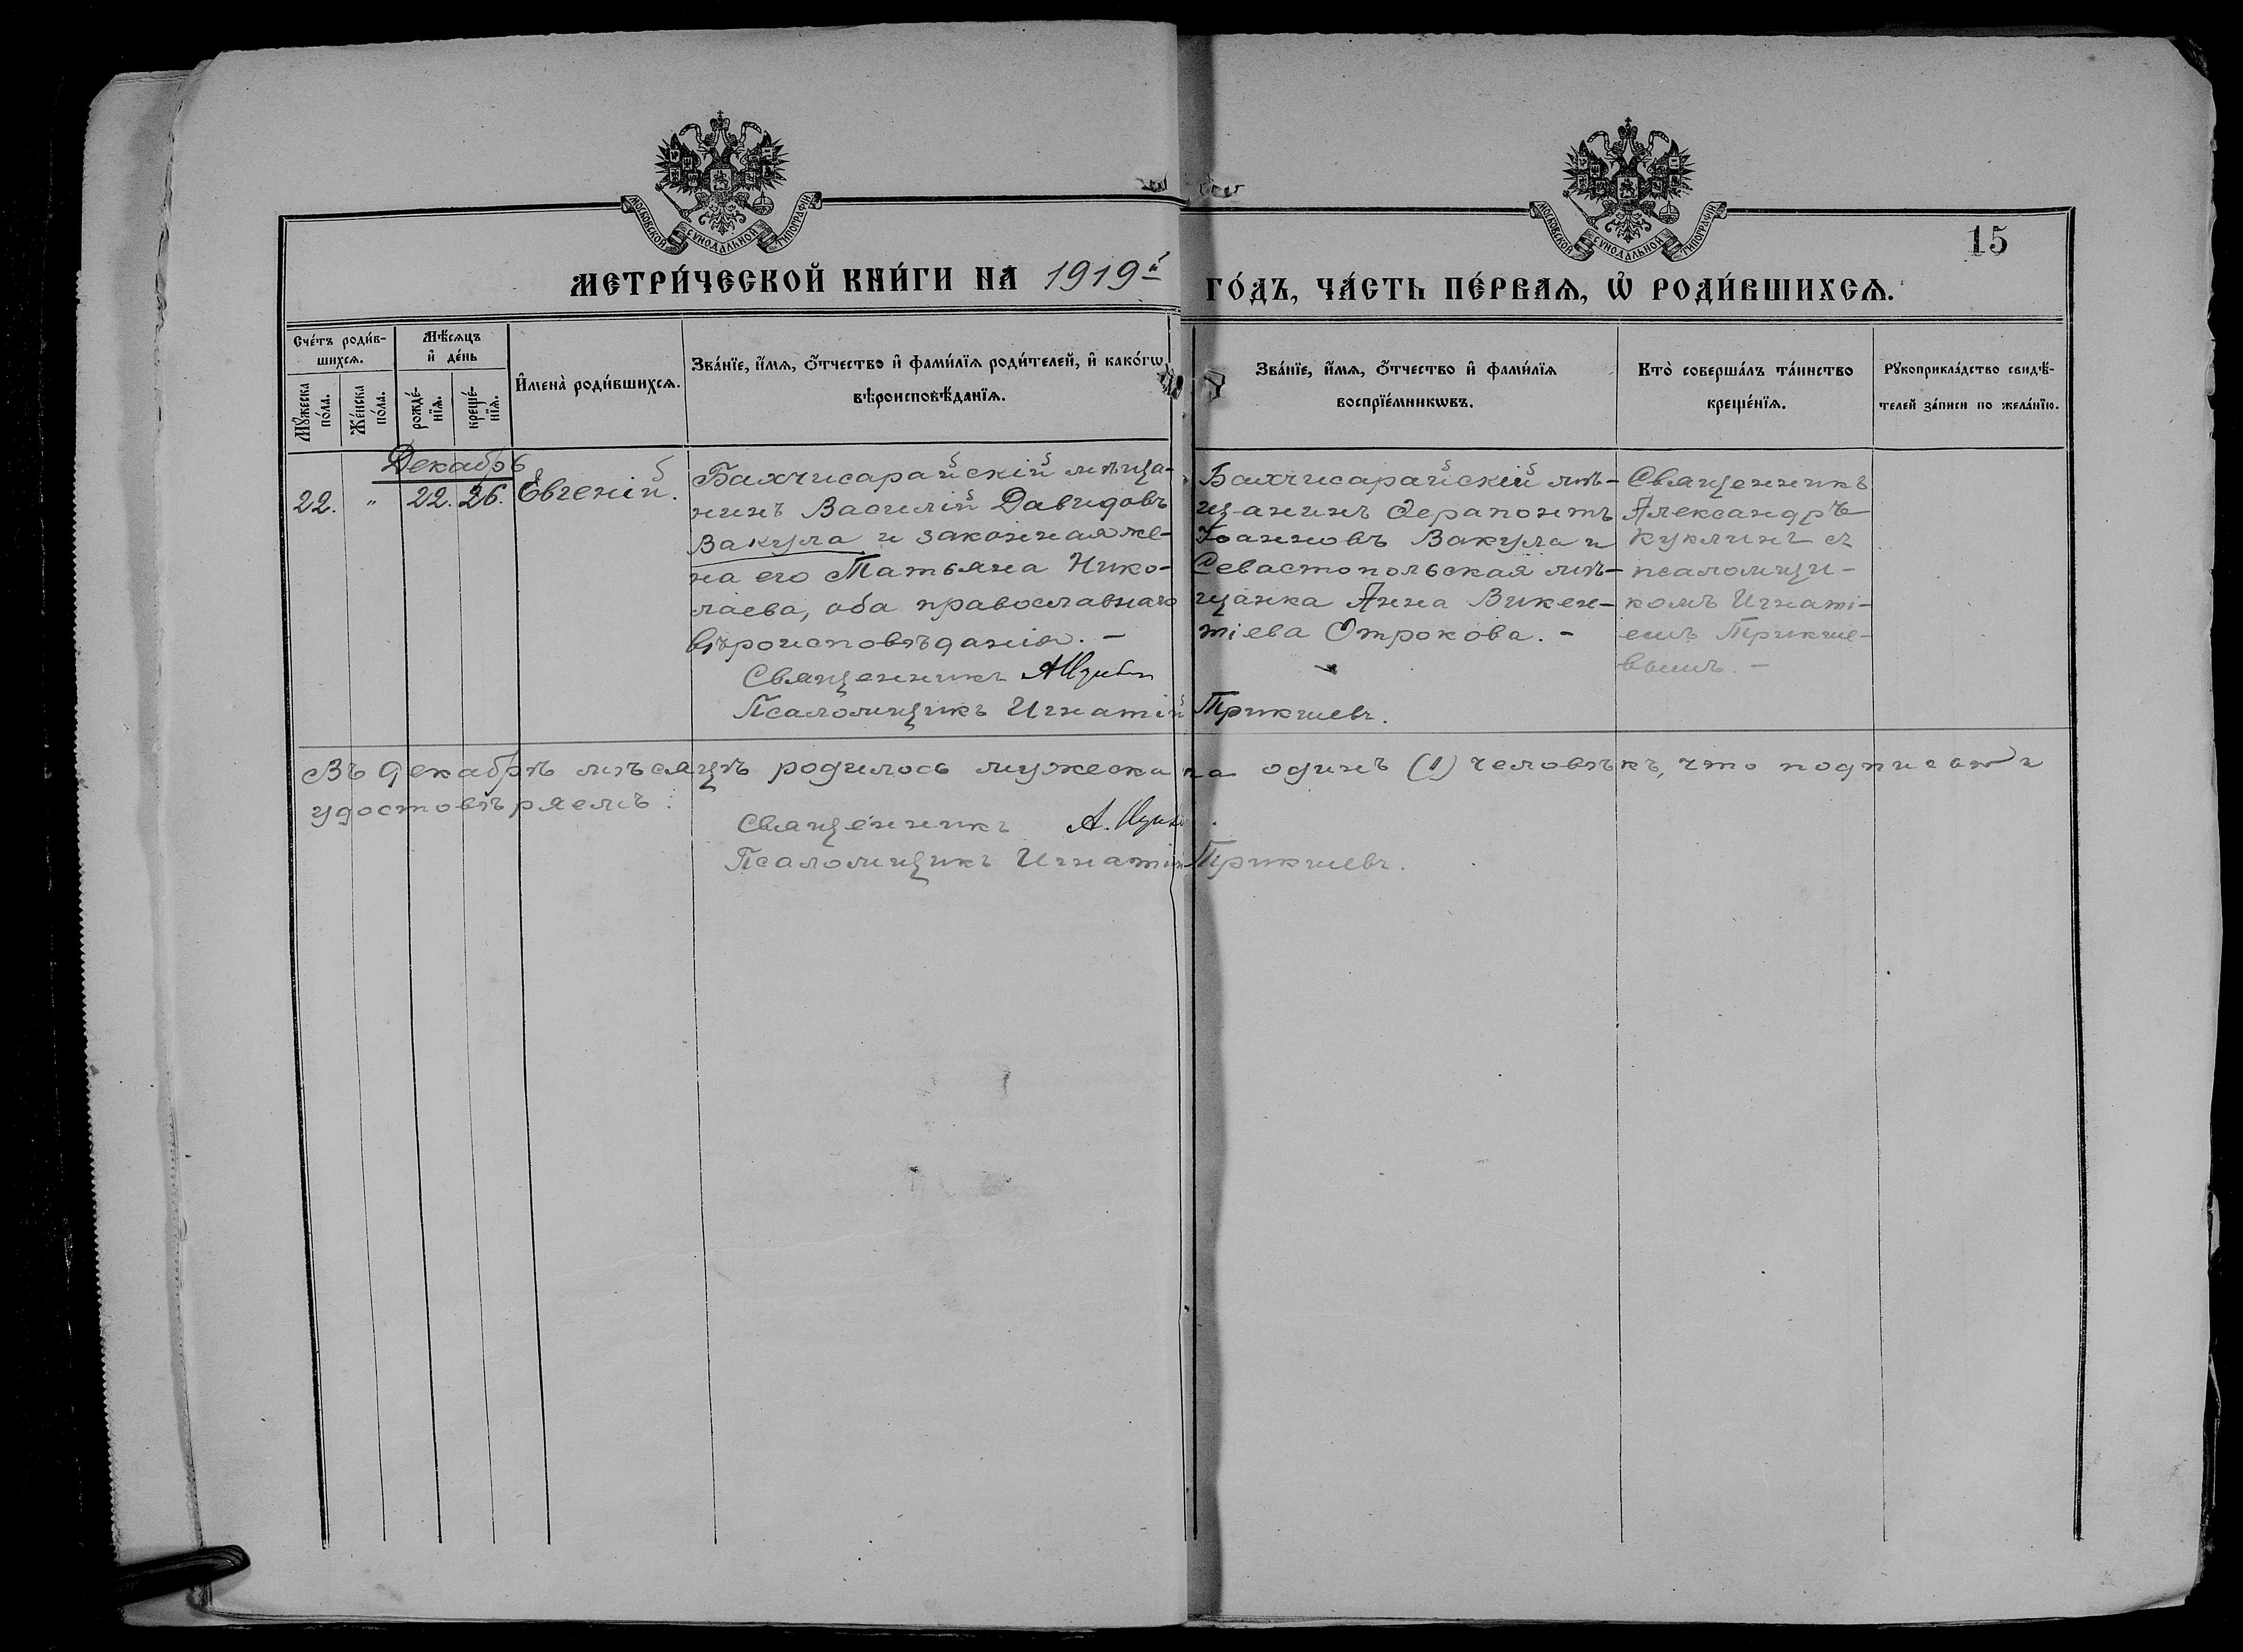 МОСКОВСКОЙ СѴНОДАЛЬНОЙ ТИПОГРАФІИ
МОСКОВСКОЙ СѴНОДАЛЬНОЙ ТИПОГРАФІИ
15
МЕТРИ́ЧЕСКОЙ КНИ́ГИ НА 1919й
ГО́ДЪ, ЧА́СТЬ ПЕ́РВАЯ, Ѡ҆ РОДИ́ВШИХСЯ.
Сче́тъ роди́в-
шихся.
Мꙋ́жеска
по́ла.
Же́нска
по́ла.
Мѣ́сяцъ
и҆ де́нь
рожде́-
нїѧ.
креще́-
нїѧ.
И҆мена̀ роди́вшихся.
Зва́нїе, и҆́мѧ, ѻ҆́тчество и҆ фами́лїѧ роди́телей, и҆ како́гѡ
вѣроисповѣ́данїѧ.
Зва́нїе, и҆́мѧ, ѻ҆́тчество и҆ фами́лїѧ
воспрїе́мникѡвъ.
Кто̀ соверша́лъ та́инство
креще́нїѧ.
Рꙋкоприкла́дство свидѣ́-
телей за́писи по жела́нїю.
Декабрь
22.
"
22.
26.
Евгеній.
Бахчисарайскій мѣща-
нинъ Василій Давидовъ
Вакула и законная же-
на его Татьяна Нико-
лаева, оба православнаго
вѣроисповѣданія. -
Бахчисарайскій мѣ-
щанинъ Ѳерапонтъ
Іоанновъ Вакула и
Севастопольская мѣ-
щанка Анна Викен-
тіева Отрокова. -
Священникъ
Александръ
Куклинъ съ
псаломщи-
комъ Игнаті-
емъ Прикше-
вымъ. -
Священникъ
Псаломщикъ Игнатій Прикшевъ.
Въ декабрѣ мѣсяцѣ родилось мужеска пола одинъ (1) человѣкъ, что подписомъ
удостовѣряемъ:
Священникъ
Псаломщикъ Игнатій Прикшевъ.